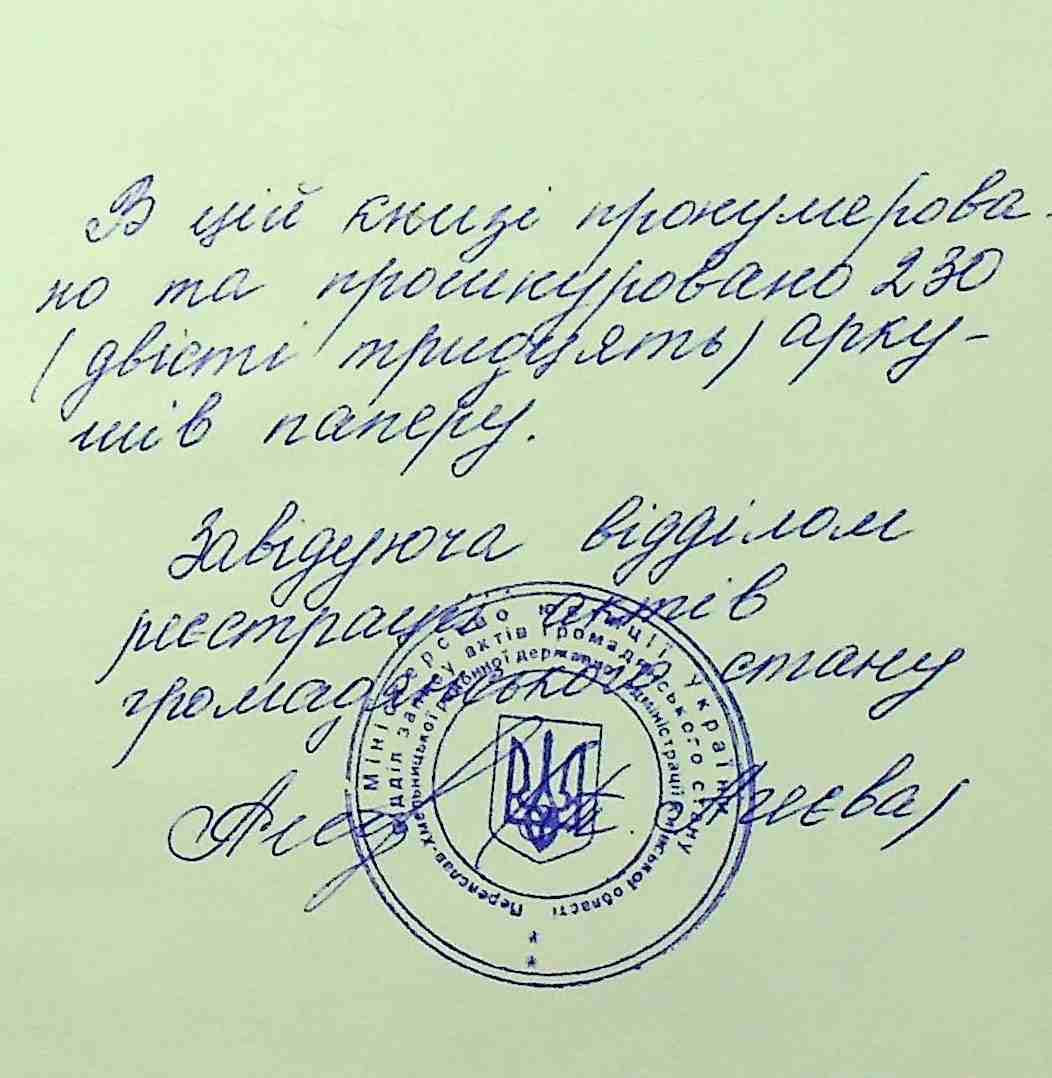 В цій книзі пронумерова-
но та прошкуровано 230
(двісті тридцять) арку-
шів паперу.
Завідуюча відділом
реєстрації актів
громадянського стану
Міністерство юстиції України
Відділ запису актів громадянського стану
Переяслав-Хмельницької районної державної адміністрації Київської області